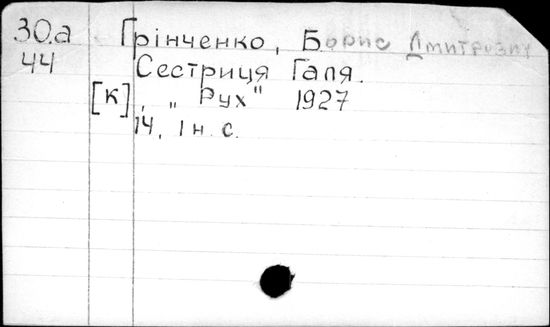 30.а Грінченко, Борис Дмитрович
44 Сестриця Галя.
[К], „Рух" 1927
14, 1 н. с.